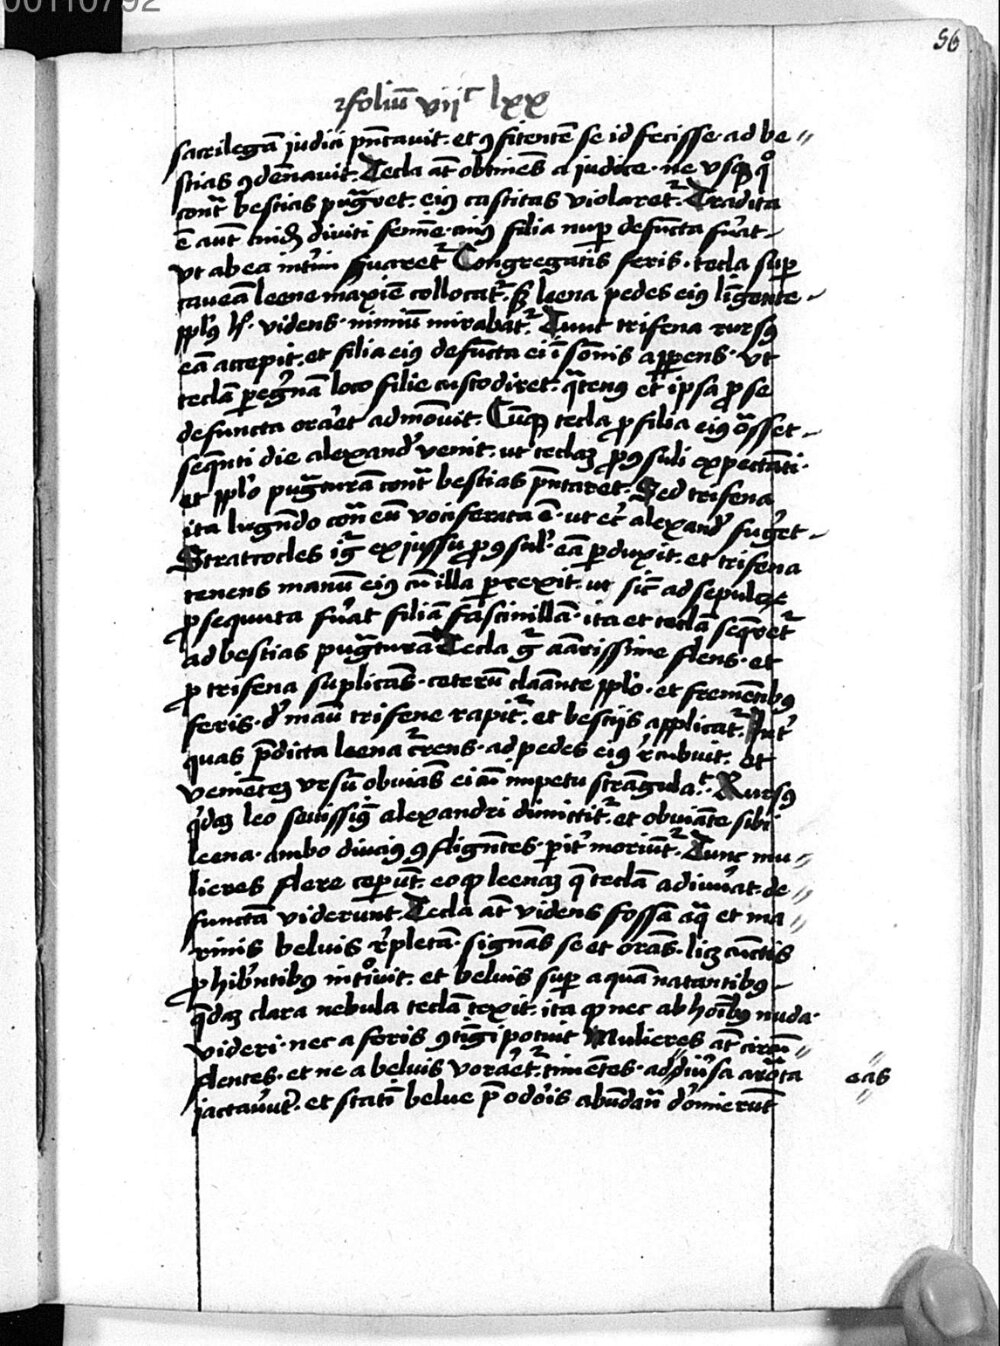 00110792
56
folium̄ vijᶜ lxx
sacrilegā judici pn̄tauit. et ꝯfitentē se id fecisse ad be〃
stias ꝯdēnauit. Tecla at̄ obtinēs a judice. ne vsqꝫ qͦ
cont̄ bestias pug̃ret. eiꝰ castitas violaret᷑. Tradita
ē aut̄ cuidā diuiti femīe. cuiꝰ filia nuꝑ defūcta fūat
vt ab ea int̄im s̄uaret᷑ Congregatis feris. tecla suꝑ
caueā leene maxīe collocat᷑. Sꝫ leena pedes eiꝰ līgente
pplūs h̄. videns. nimiū mirabat᷑. Tunc trifena rursꝰ
eā accepit. et filia eiꝰ defūcta ei ī sōnis apꝑens. vt
teclā ꝑegnā loco filie custodiret. q̄tenꝰ et ipsa ꝓ se
defuncta orāet admōuit. Cūqꝫ tecla ꝓ filia eiꝰ ōsset
seq̄nti die alexand̄ venit. ut teclaꝫ ꝓꝯsuli expectāti.
et pplo pug̃turā cont̄ bestias pn̄taret. Sed trifena
ita lugēdo con̄ eū vociferata ē. ut et alexand̄ fuḡet
Stratocles ig̃ ex jussu ꝓꝯsul̄. eā ꝑduxit. et trifena
tenens manū eiꝰ cū illa ꝑrexit. ut sic̄ ad sepulcꝝ
ꝓsequuta fūat filiā fascinillā. ita et teclā seq̄ret᷑
ad bestias pug̃turā Tecla g̃ amarissime flens. et
ꝓ trifena suplicās. ceterū clāante pplo. et fremētibꝰ
feris. d̄ māu trifene rapit᷑. et bestijs applicat᷑. Int̄
quas p̄dicta leena c̄rens. ad pedes eiꝰ r̄cubuit. et
venientē vrsū obuiās ei cū impetu strāgulat. Rursꝰ
q̄daꝫ leo seuissimꝰ alexandri dimittit᷑. et obuiāte sibi
leena. ambo diucius ꝯfligētes. ꝑit̄ moriūt᷑. Tunc mu〃
lieres flere ceꝑūt. eo ꝙ leenaꝫ q̄ teclā adiuūat. de〃
functā viderunt. Tecla at̄ videns fossā aq̄ et ma〃
rinis beluis r̄pletā. signās se et orās. licꝫ cunctis
ꝓhibētibꝰ int̄ouit. et beluis suꝑ aquā natantibꝰ
q̄daꝫ clara nebula teclā texit. ita ꝙ nec ab hoībꝰ nuda
videri. nec a feris ꝯtīgi potuit Mulieres at̄ circū〃
flentes. et ne a beluis vorāet᷑. timētes. ad diūsa arōata 〃eas〃
jactauūt. et statī belue p̄ odōis abūdan̄ d̄omierūt